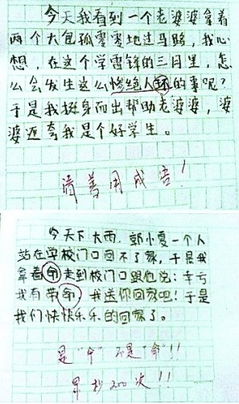 今天我看到一个老婆婆拿着
两个大包孤零零地过马路，我心
想，在这个学雷锋的三月里，怎
么会发生这么惨绝人寰的事呢？
于是我挺身而出帮助老婆婆，婆
婆还夸我是个好学生。
请善用成语！
今天下大雨，郭小夏一个人
站在学校门口回不了家，于是我
拿着命走到校门口跟他说：幸亏
我有带命，我送你回家吧！于是
我们快快乐乐的回家了。
是“伞”不是“命”!!
罚抄200次!!